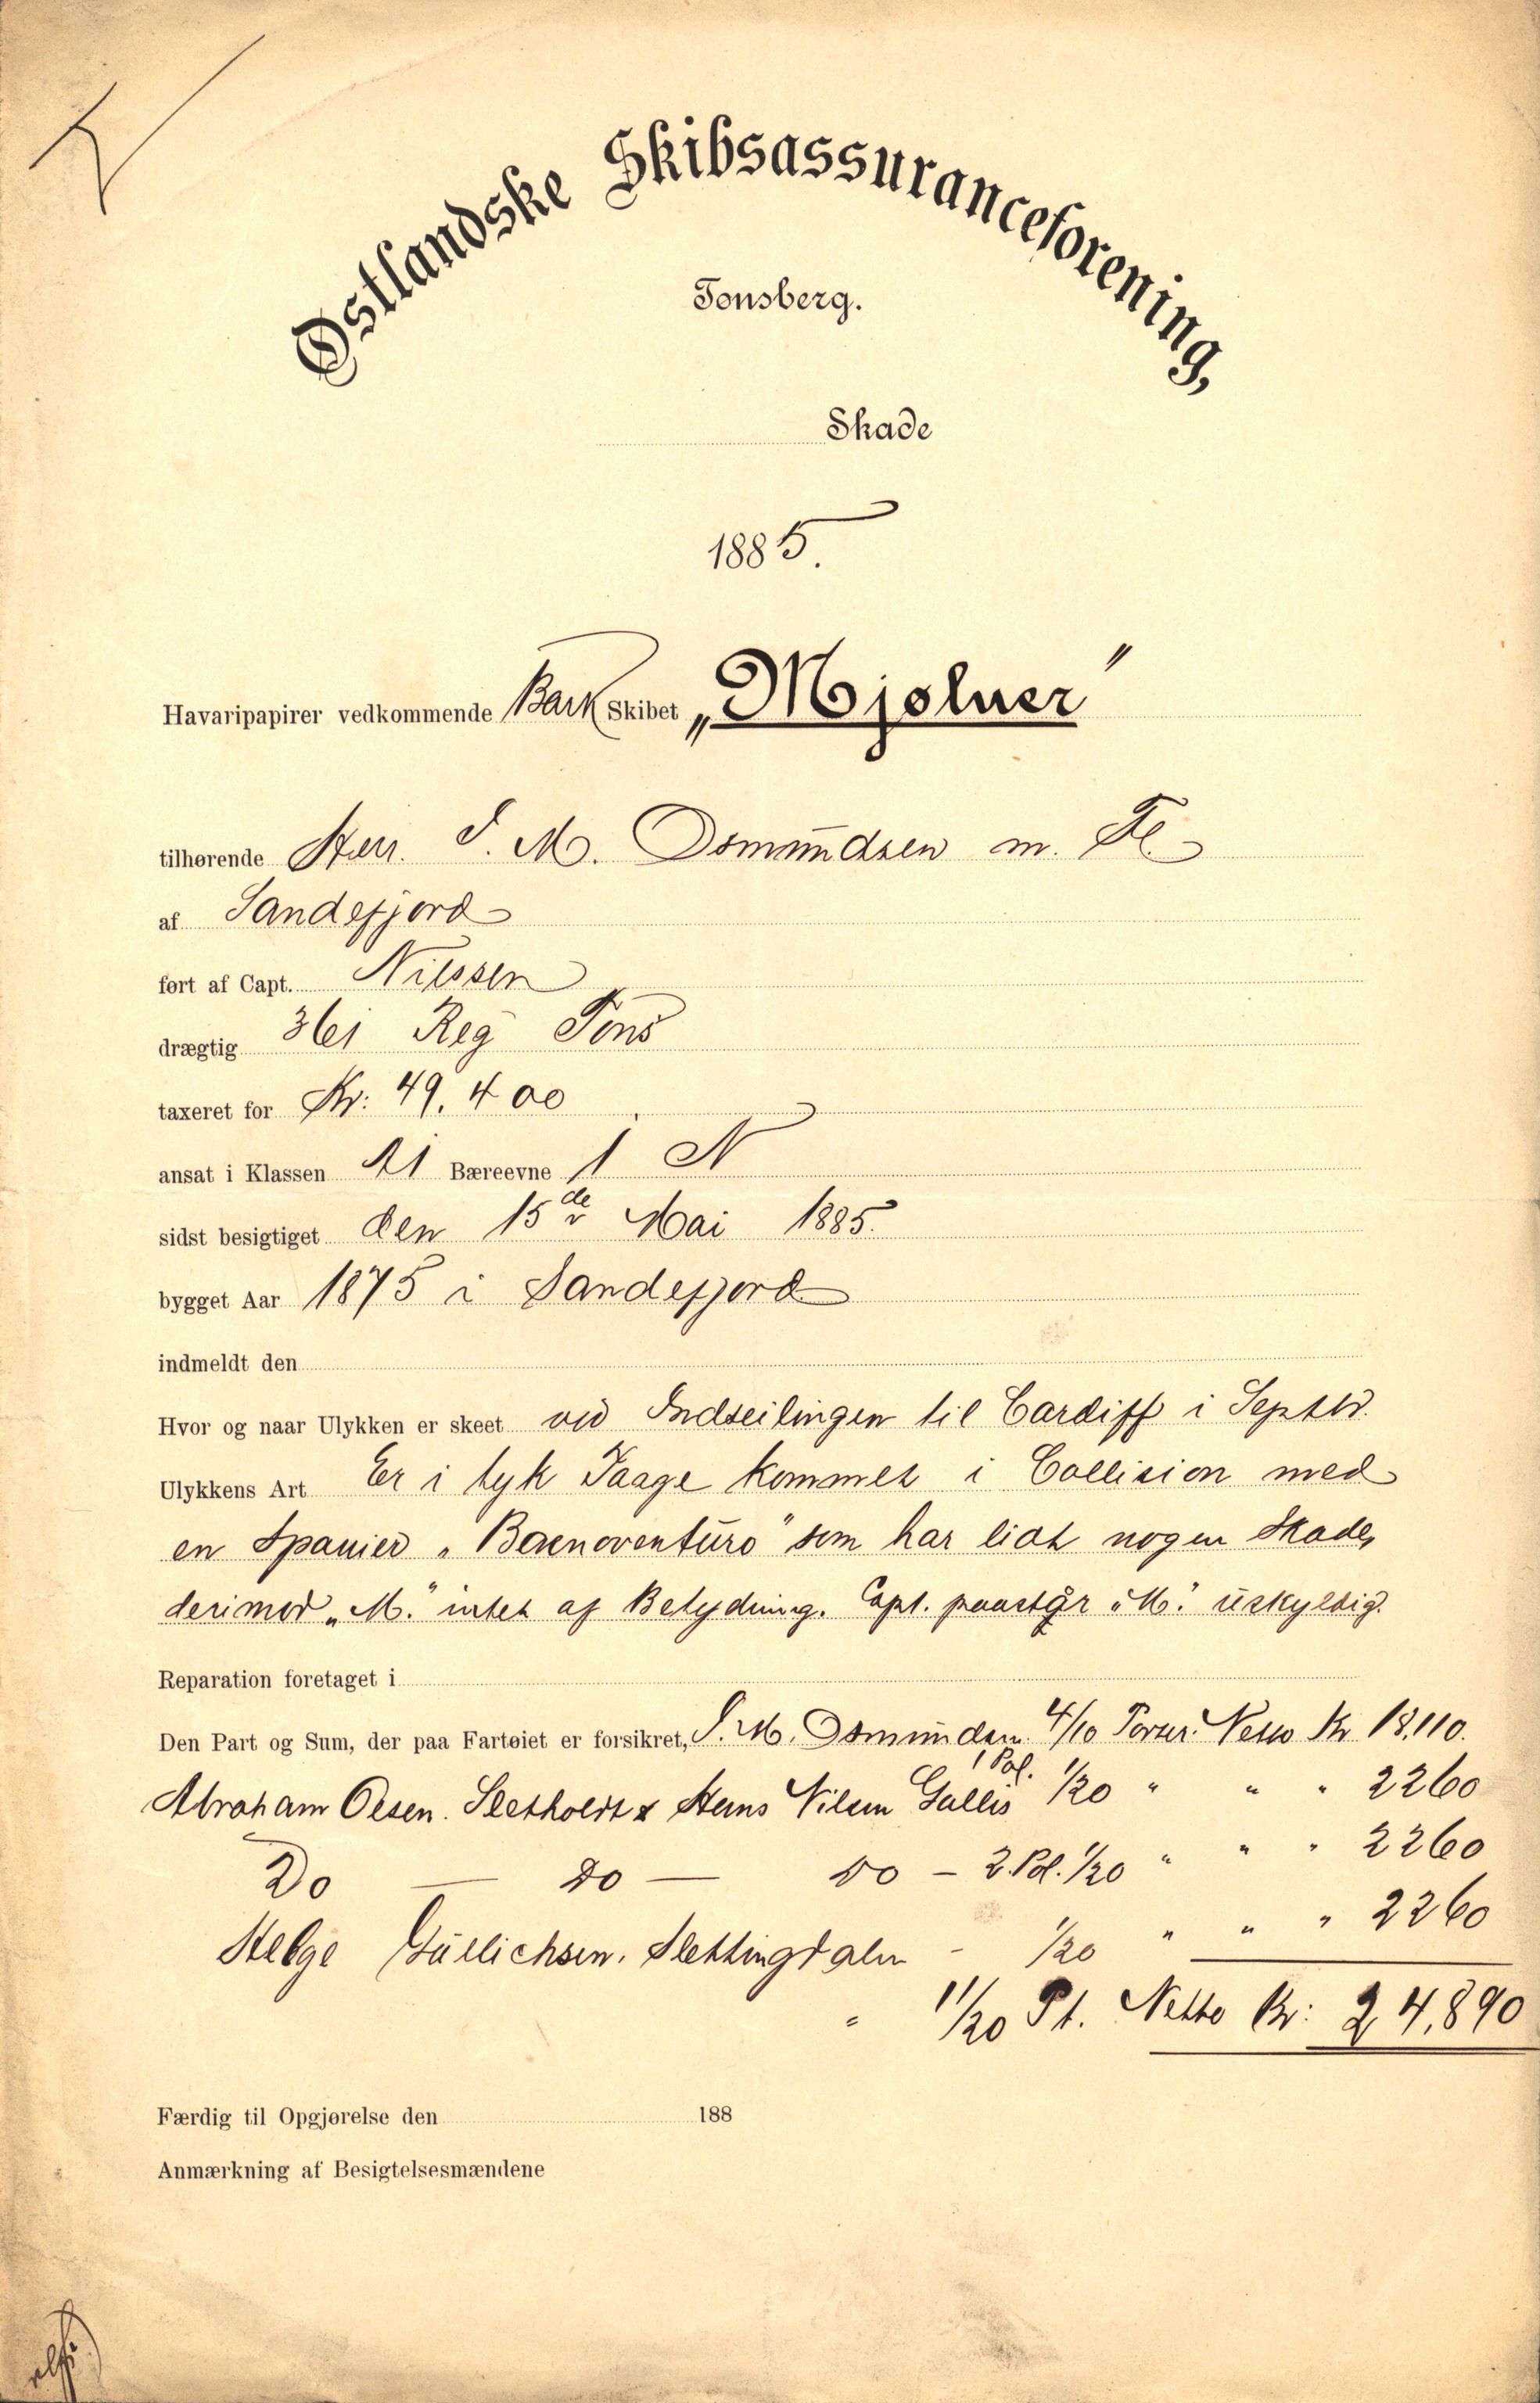 Østlandske Skibsassuranceforening,
Tønsberg.
Skade
1885.
Havaripapirer vedkommende Bark Skibet „Mjølner"
tilhørende Herr. J. M. Osmundsen m. Fl.
af Sandefjord
ført af Capt. Nilssen
drægtig 361 Reg Tons
taxeret for Kr: 49.400
ansat i Klassen A1 Bæreevne 1 N
sidst besigtiget den 15de Mai 1885.
bygget Aar 1875 i Sandefjord
indmeldt den
Hvor og naar Ulykken er skeet ved Indseilingen til Cardiff i Septbr.
Ulykkens Art Er i tyk Taage kommet i Collision med
en Spanier „ " som har lidt nogen Skade,
derimod „M." intet af Betydning. Capt. paastår „M." uskyldig.
Reparation foretaget i
Den Part og Sum, der paa Fartøiet er forsikret, J. M. Osmundsen 4/10 Netto Kr 18.110.
Abraham Olsen. & Hans Nilsen 1 Pol. 1/20 " " " 2260
Do — Do — Do — 2. Pol. 1/20 " " " 2260
Helge Gullichsen. - 1/20 " " " 2260
" 11/20 Pt. Netto Kr: 24,890
Færdig til Opgjørelse den 188
Anmærkning af Besigtelsesmændene